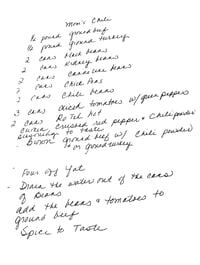 Mom's Chili
½ pound ground beef
½ pound ground turkey
2 cans black beans
2 cans kidney beans
2 cans cannellini beans
2 cans chick peas
2 cans chili beans
3 cans diced tomatoes w/ green peppers
2 cans RoTel hot
cumin, crushed red pepper, chili powder
seasonings to taste
- Brown ground beef w/ chili powder
+ or ground turkey
- Pour off fat
- Drain the water out of the cans
of beans
add the beans & tomatoes to
ground beef
Spice to Taste